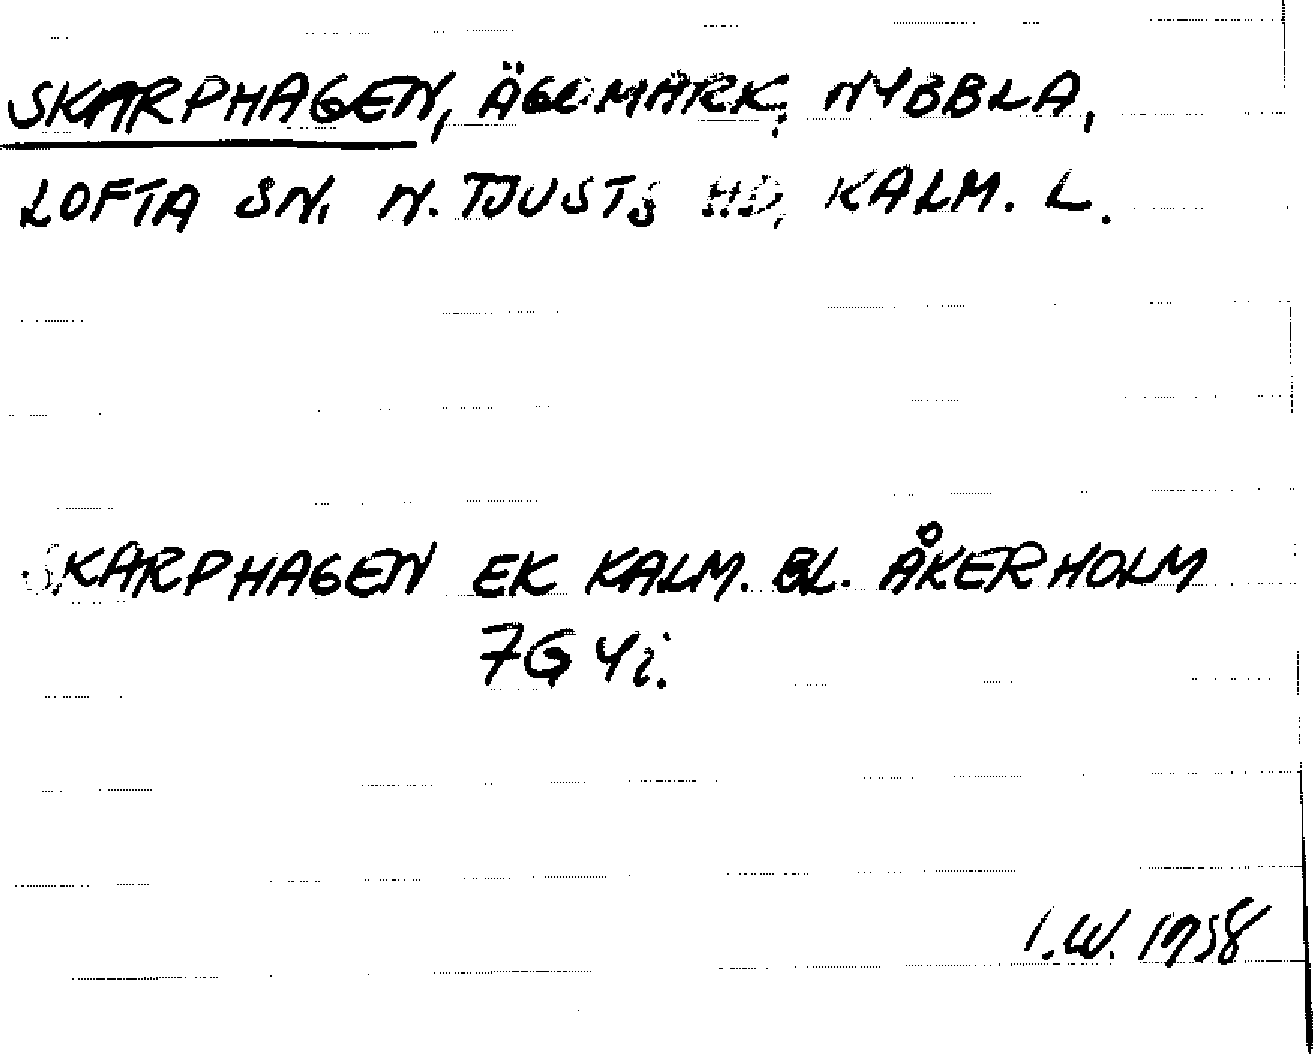 SKARPHAGEN, ÄGOMARK, NYBBLA,
LOFTA SN. N. TJUSTS HD, KALM. L.
SKARPHAGEN EK KALM. BL. ÅKERHOLM
7G 4i.
I.W. 1958